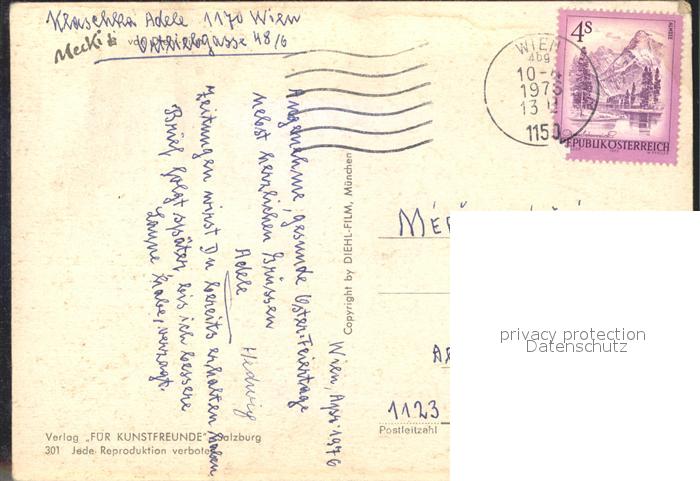 Klaschka Adele 1170 Wien
Mecki
Ortliebgasse 48/6
WIEN
abg
10-4
1976
13
1150
4S
REPUBLIK ÖSTERREICH
Wien, Apr. 1976
Angenehme, gesunde Oster-Feiertage
nebst herzlichen Grüssen
Adele Hedwig
Zeitungen wirst Du bereits erhalten haben
Brief folgt später, bis ich bessere
Laune habe, verzagt.
Copyright by DIEHL-FILM, München
1123
Postleitzahl
Verlag „FÜR KUNSTFREUNDE" Salzburg
301 Jede Reproduktion verboten
privacy protection
Datenschutz